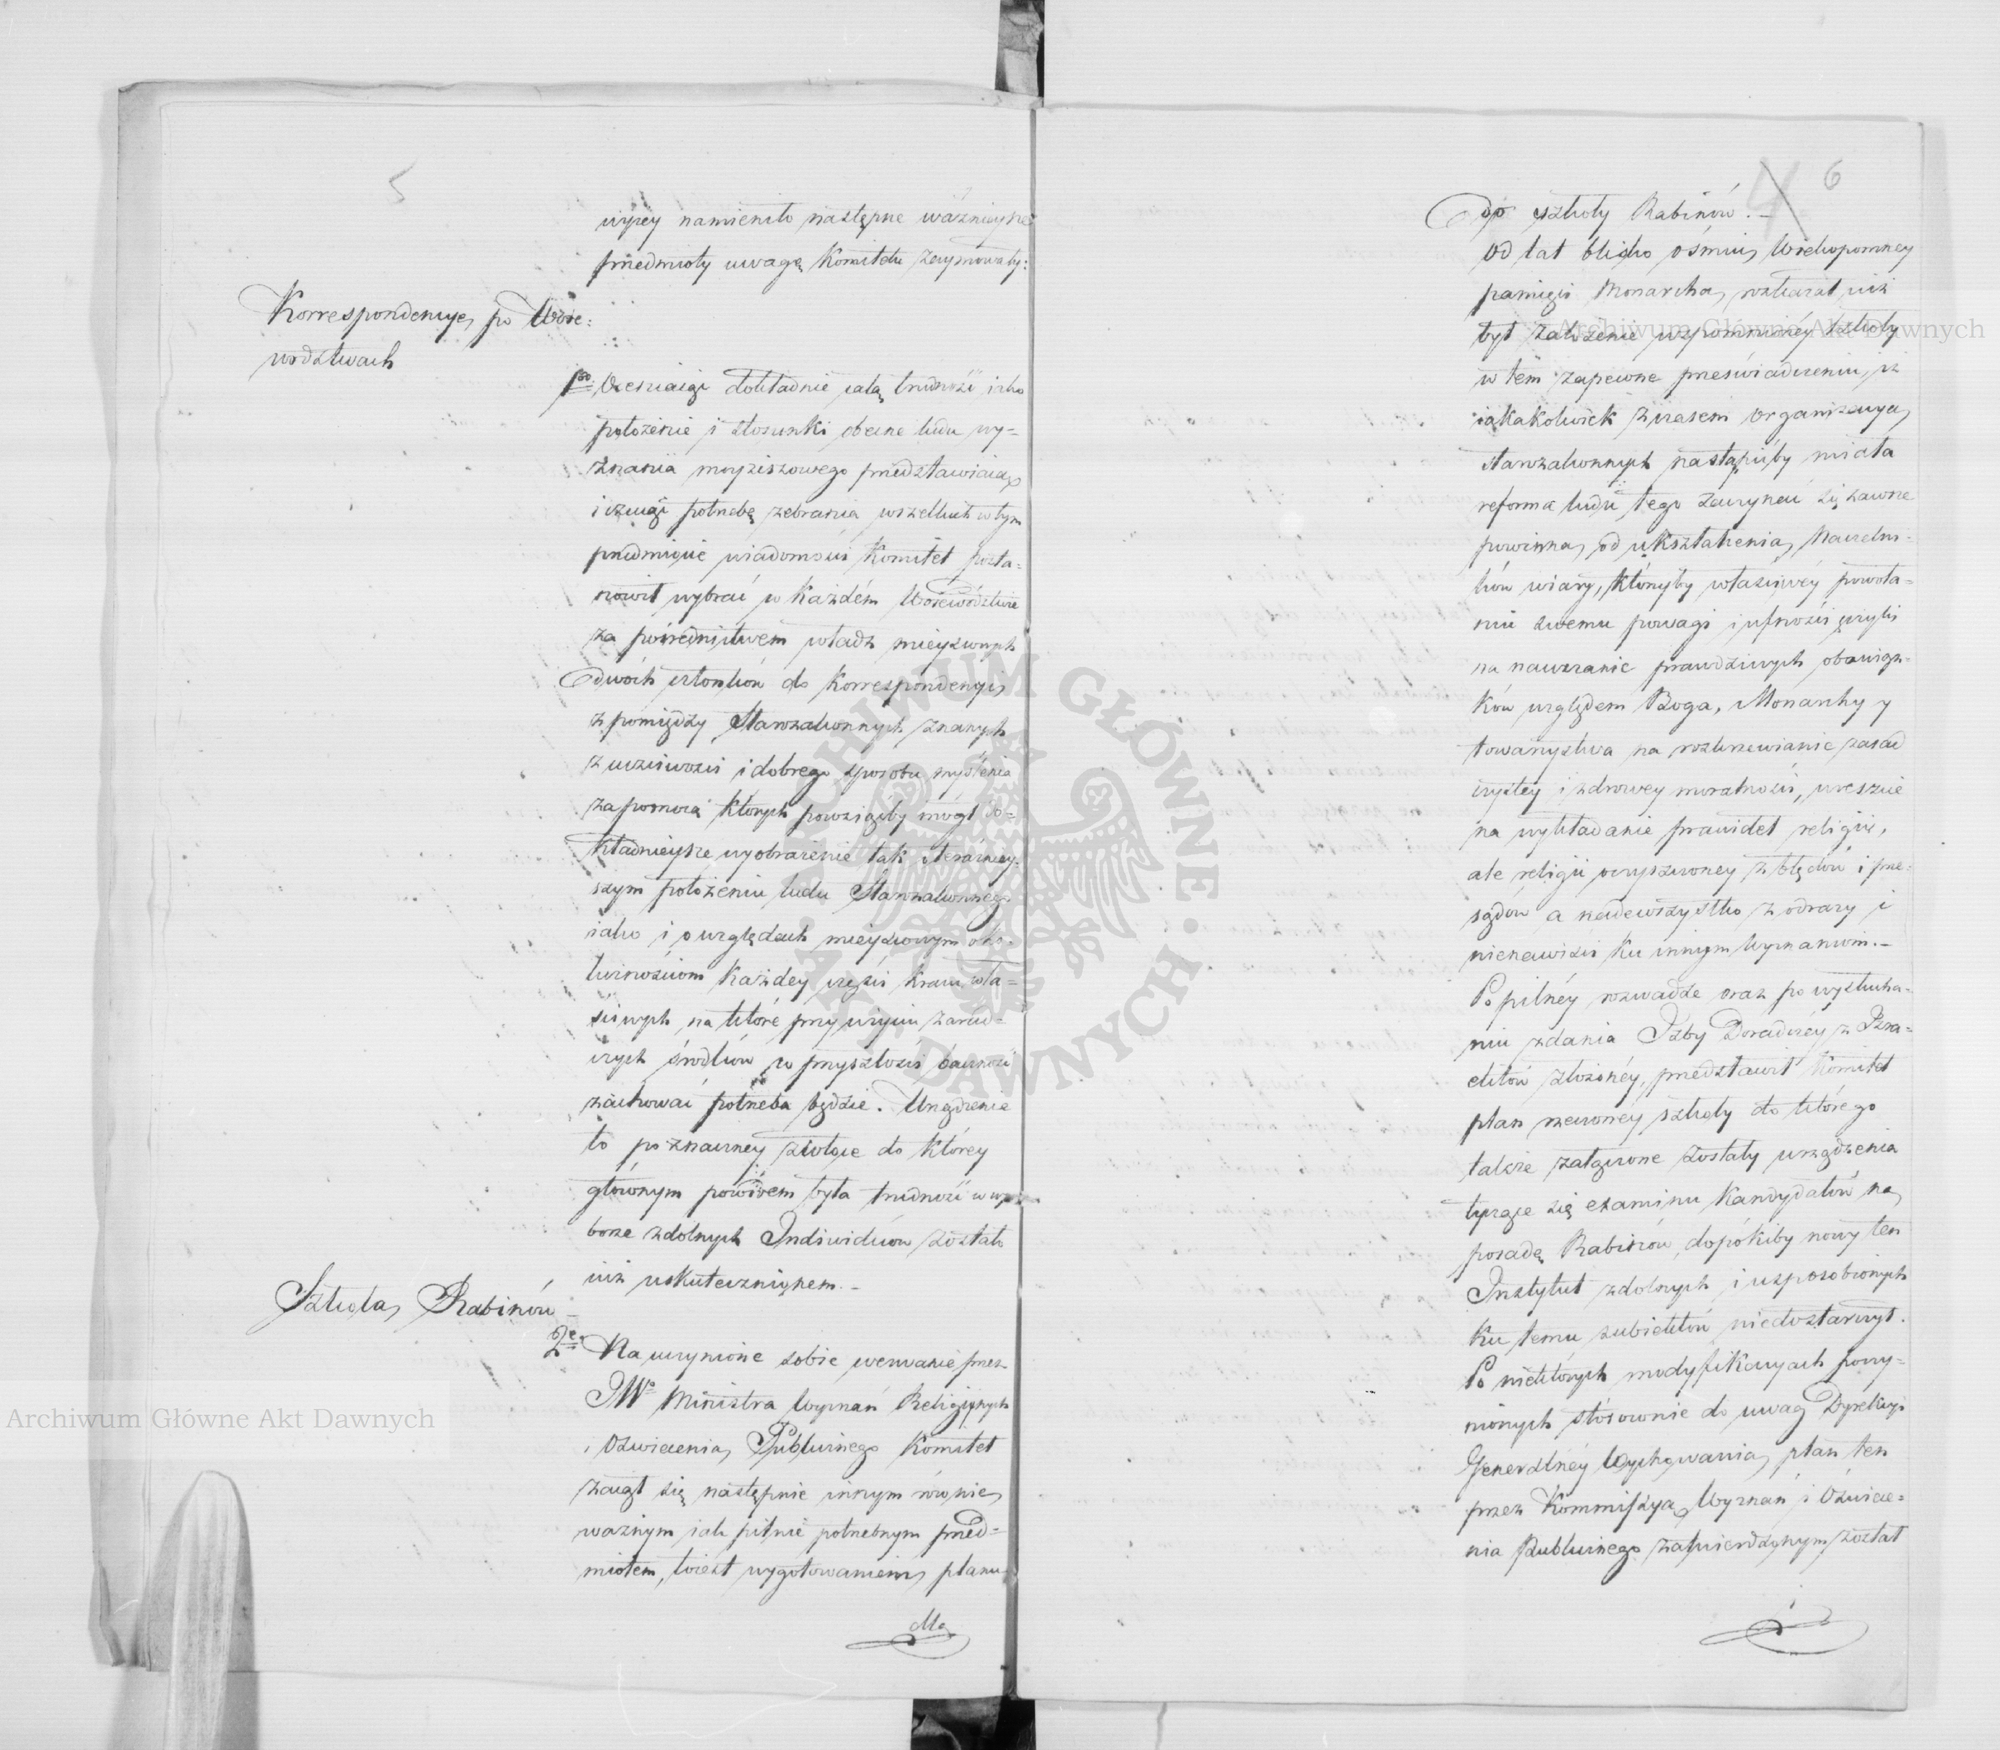 5
wyżey namienić następne ważnieysze
przedmioty uwagę Komitetu zaymowały:
Korrespondencye po Woie:
wodztwach
1mo Oceniaiąc dokładnie całą trudność iako
położenie i stosunki obecne ludu wy-
znania moyżeszowego przedstawiaią
i czuiąc potrzebę zebrania wszelkich w tym
przedmiocie wiadomości Komitet posta-
nowił wybrać w każdém Woiewództwie
za pośrednictwem władz mieyscowych
dwóch członków do Korrespondencyi
z pomiędzy Starozakonnych znanych
z uczciwości i dobrego sposobu myślenia
za pomocą których powziąśćby mógł do-
kładnieysze wyobrażenie tak o teraźniey-
szym położeniu ludu Starozakonnego
iako i o względach mieyscowym oko-
licznościom każdey części kraiu wła-
ściwych, na które przy użyciu zarad-
czych środków w przyszłości baczność
zachować potrzeba będzie. Urządzenie
to po znaczney zwłoce do którey
głównym powodem była trudność w wy-
borze zdolnych Individuów zostało
iuż uskutecznionem.-
Szkoła Rabinów
2e. Na uczynione sobie wezwanie przez
JWo Ministra Wyznań Religiynych
i Oświecenia Publicznego Komitet
zaiął się następnie innym równie
ważnym iak pilnie potrzebnym przed-
miotem, to iest wygotowaniem planu
6
do szkoły Rabinów.-
Od lat blisko ośmiu Wiekopomney
pamięci Monarcha rozkazał iuż
był założenie wspomnioney szkoły
w tem zapewne przeświadczeniu, iż
iakakolwiek z czasem organizacya
starozakonnych nastąpićby miała
reforma ludu tego zaczynać się zawsze
powinna od ukształcenia Naczelni-
ków wiary, którzyby właściwéy powoła-
niu swemu powagi i ufności użyli
na nauczanie prawdziwych obowiąz-
ków względem Boga, Monarchy y
towarzystwa na rozkrzewianie zasad
czystey i zdrowey moralności, wreszcie
na wykładanie prawideł religii,
ale religii oczyszczoney z błędów i prze-
sądów a nadewszystko z odrazy i
nienawiści ku innym Wyznaniom.-
Po pilnéy rozwadze oraz po wysłucha-
niu zdania Izby Doradczéy z Izra-
elitów złożonéy, przedstawił Komitet
plan rzeczoney szkoły do którego
także załączone zostały urządzenia
tyczące się examinu Kandydatów na
posadę Rabinów, dopókiby nowy ten
Instytut zdolnych i usposobionych
ku temu subiektów niedostarczył.
Po niektórych modyfikacyach poczy-
nionych stósownie do uwag Dyrekcyi
Generalnéy Wychowania, plan ten
przez Kommissyą Wyznań i Oświece-
nia Publicznego zatwierdzonym został